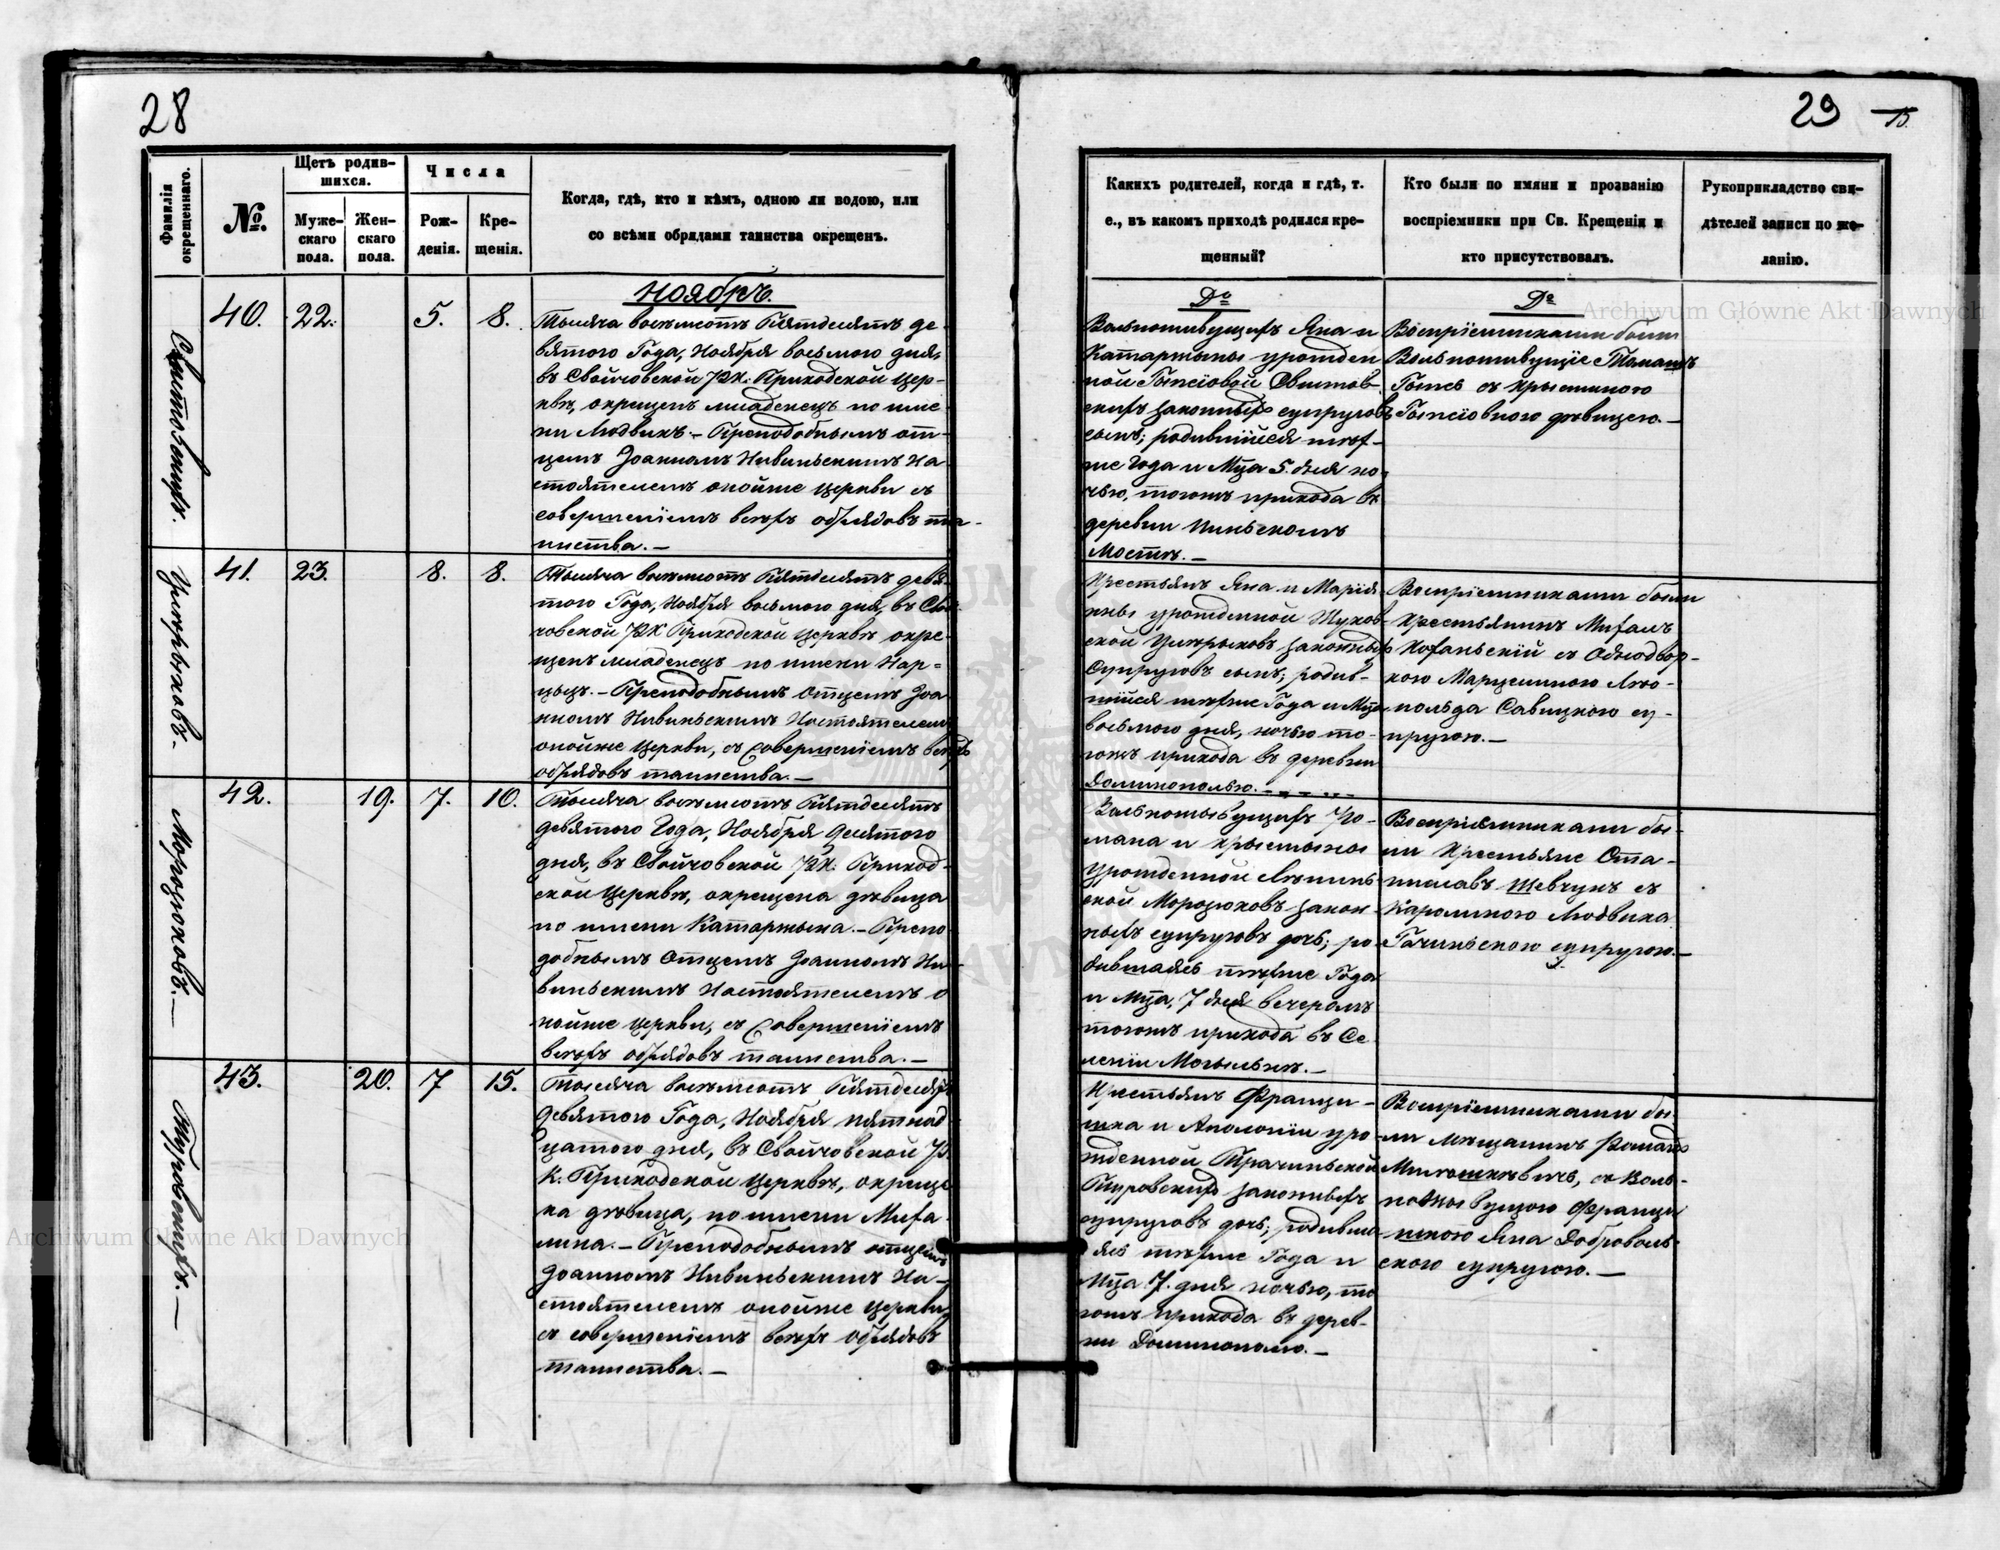 28
Фамилія окрещеннаго.
№.
Щетъ родив-
шихся.
Муже-
скаго
пола.
Жен-
скаго
пола.
Числа
Рож-
денія.
Кре-
щенія.
Когда, гдѣ, кто и кѣмъ, одною ли водою, или
со всѣми обрядами таинства окрещенъ.
Ноябръ.
40. 22. 5. 8.
Тысяча восемьсотъ Пятдесятъ де-
вятого Года, Ноября восьмого дня,
въ Свойчовской Р.К. Приходской Цер-
квѣ, окрещенъ младенецъ по име-
ни Людвикъ. – Преподобнымъ от-
цемъ Іоанномъ Нивинскимъ На-
стоятелемъ оной же Церкви съ
совершеніемъ всѣхъ обрядовъ та-
инства. –
41. 23. 8. 8.
Тысяча восемьсотъ Пятдесятъ девя-
того Года, Ноября восьмого дня, въ Свой-
човской Р.К. Приходской Церквѣ окре-
щенъ младенецъ по имени Нар-
цызъ. – Преподобнымъ Отцемъ Іоа-
нномъ Нивинскимъ Настоятелемъ
оной же Церкви, съ совершеніемъ всѣхъ
обрядовъ таинства. –
Морозюковъ. –
42. 19. 7. 10.
Тысяча восемьсотъ Пятдесятъ
девятого Года, Ноября десятого
дня, въ Свойчовской Р.К. Приход-
ской Церквѣ, окрещена дѣвица
по имени Катаржина. – Препо-
добнымъ Отцемъ Іоанномъ Ни-
винскимъ Настоятелемъ о
ной же Церкви, съ совершеніемъ
всѣхъ обрядовъ таинства. –
43. 20. 7 15.
Тысяча восемьсотъ Пятдесятъ
девятого Года, Ноября пятнад
цатого дня, въ Свойчовской Р.
К. Приходской Церквѣ, окреще
на дѣвица, по имени Миха-
лина. – Преподобнымъ отцемъ
Іоанномъ Нивинскимъ На-
стоятелемъ оной же Церкви,
съ совершеніемъ всѣхъ обрядовъ
таинства. –
29
15.
Какихъ родителей, когда и гдѣ, т.
е., въ какомъ приходѣ родился кре-
щенный?
Кто были по имяни и прозванію
воспріемники при Св. Крещеніи и
кто присутствовалъ.
Рукоприкладство сви-
дѣтелей записи по же-
ланію.
До
До
Вольноживущихъ Яна и
Катаржины урожден
ной
законныхъ супруговъ
сынъ; родившійся тогѡ-
же года и Мца 5. дня но-
чью, тогожъ прихода въ
деревни
Мостѣ. –
Воспріемниками были
Вольноживущіе Томашъ
съ Крыстиною
дѣвицею. –
Крестьянъ Яна и Марія
нны урожденной Жуков-
ской законныхъ
Супруговъ сынъ; родив-
шійся тогоже Года и Мца
восьмого дня, ночью то-
гожъ прихода въ деревни
Доминополью. –
Воспріемниками были
Крестьянинъ Михалъ
съ Однодвор-
кою Марцелиною Лео-
польда Савицкою су-
пругою. –
Вольноживущихъ Ро-
мана и Крыстыны
урожденной
Морозюковъ закон-
ныхъ супруговъ дочь; ро-
дившаясь тогоже Года
и Мца, 7 дня вечеромъ
тогожъ прихода въ Се-
леніи Могыльнѣ. –
Воспріемниками бы-
ли Крестьяне Ста-
ниславъ Шевчукъ съ
Каролиною Людвика
супругою. –
Крестьянъ Франци-
шка и Аполоніи уро
жденной
законныхъ
супруговъ дочь; родивша
ясь тогоже Года и
Мца 7. дня ночью, то
гожъ прихода въ дерев-
ни Доминополю. –
Воспріемниками бы-
ли мѣщанинъ Романъ
съ Воль-
ноживущою Францы
шкою Яна Доброволь-
скою супругою. –
Archiwum Główne Akt Dawnych
Archiwum Główne Akt Dawnych